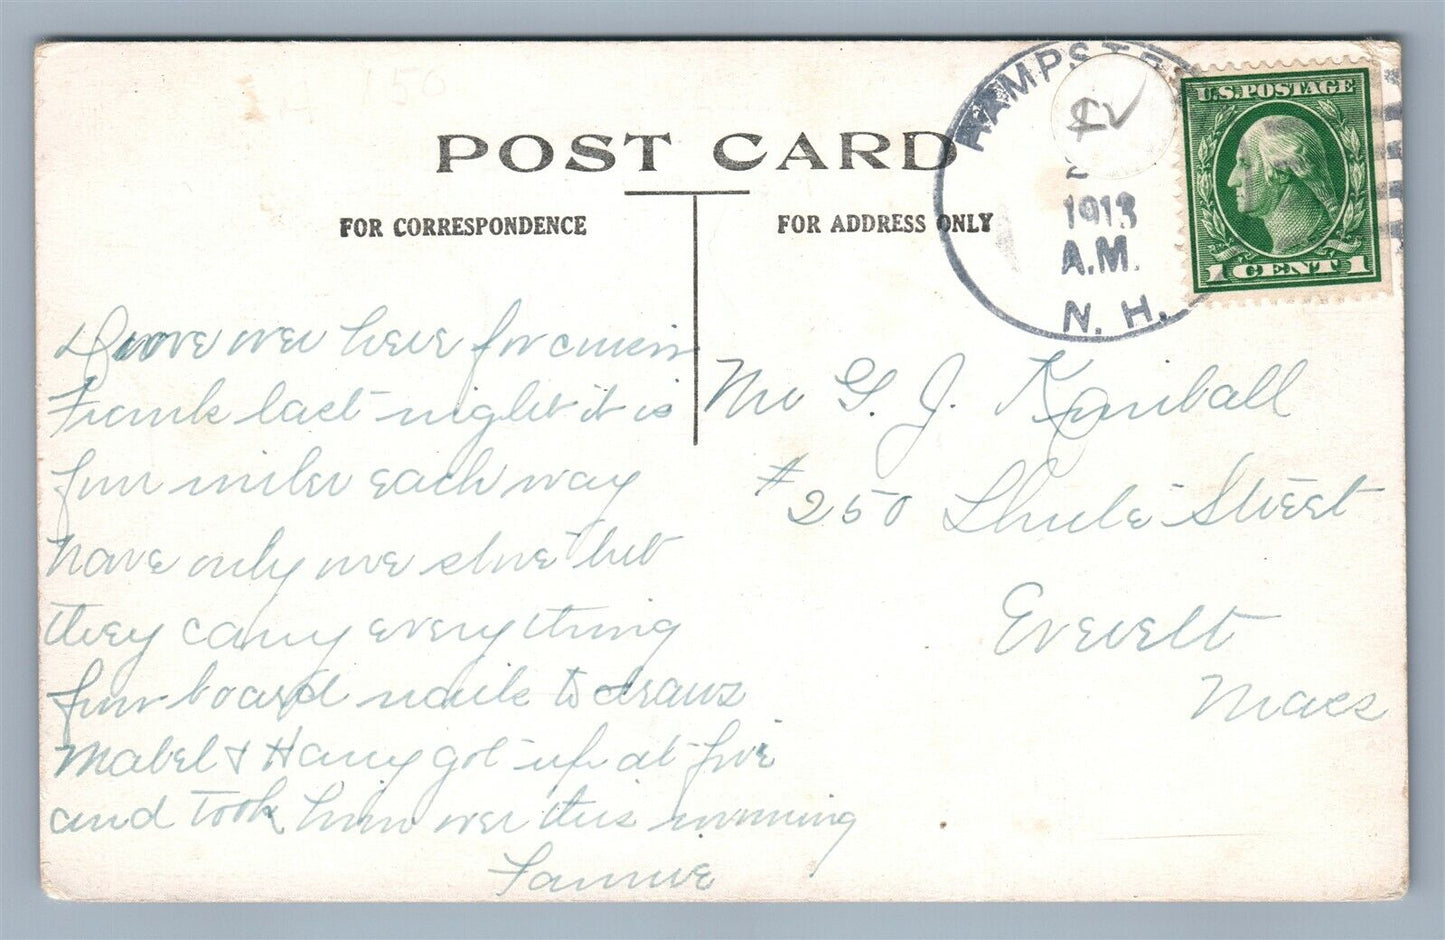 POST CARD
FOR CORRESPONDENCE
FOR ADDRESS ONLY
HAMPSTE
1913
A.M.
N. H.
U.S. POSTAGE
1 CENT 1
150
Drove over here for cousin
Frank last night it is
four miles each way
have only one store but
they carry everything
from board nails to draws
Mabel & Harry got up at five
and took him over this morning
Fannie
Mr G. J. Kimball
# 250 Street
Everett
Mass